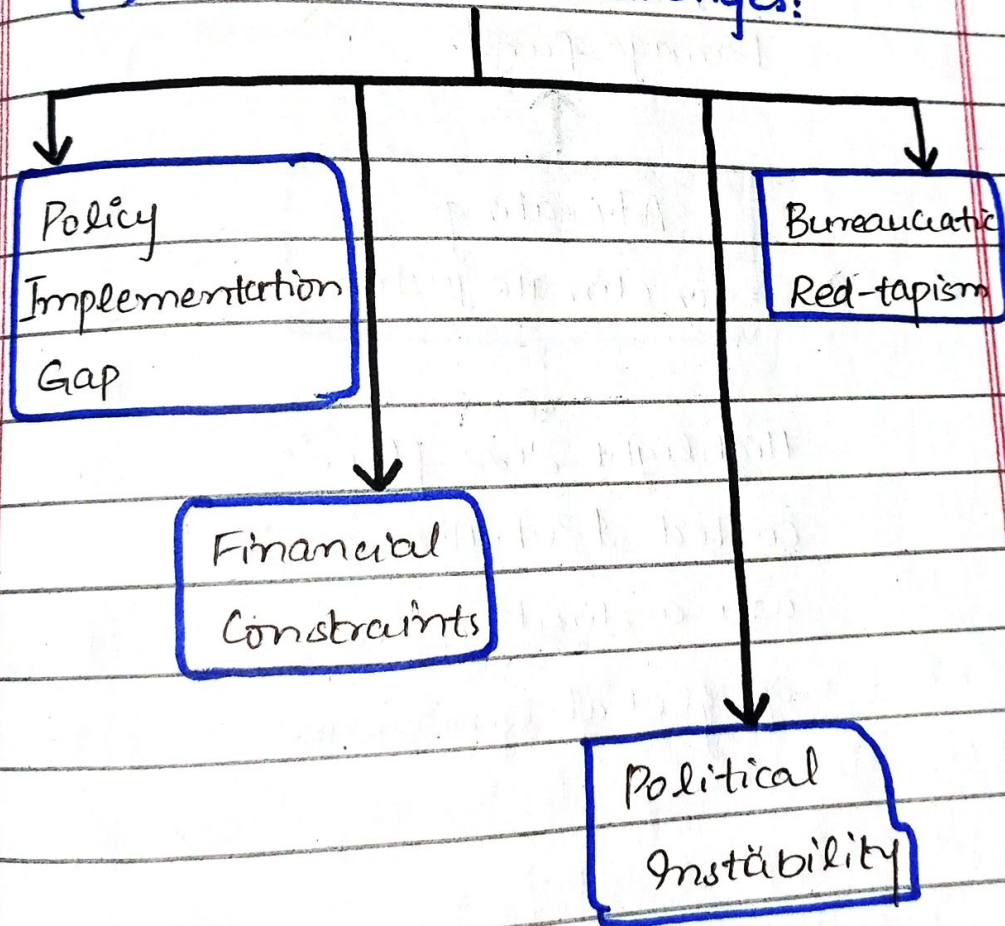 Policy
Implementation
Gap
Financial
Constraints
Political
Instability
Bureaucratic
Red-tapism